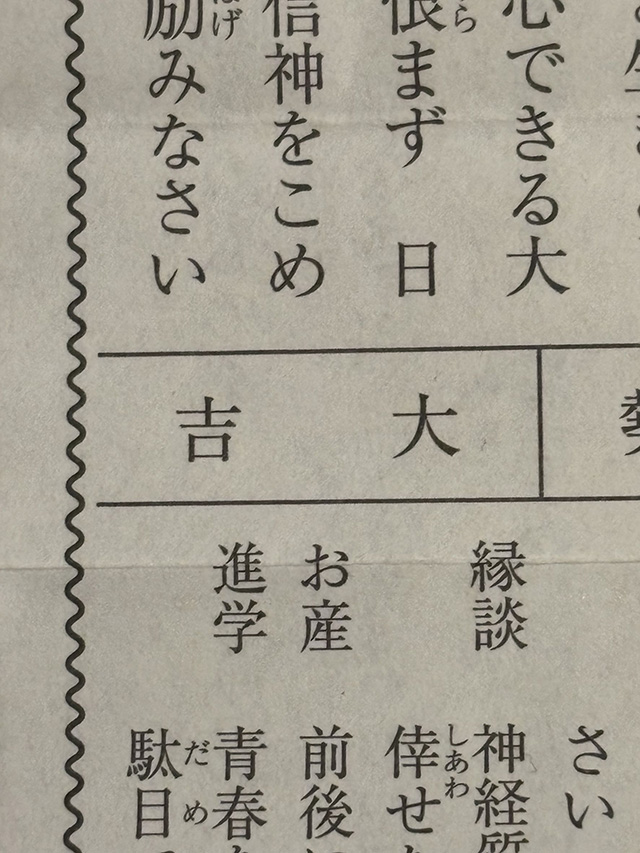 心できる大
恨まず 日
信神をこめ
励みなさい
大吉
さい
縁談 神経質
しあわ
倖せ
お産 前後に
進学 青春
だめ
駄目